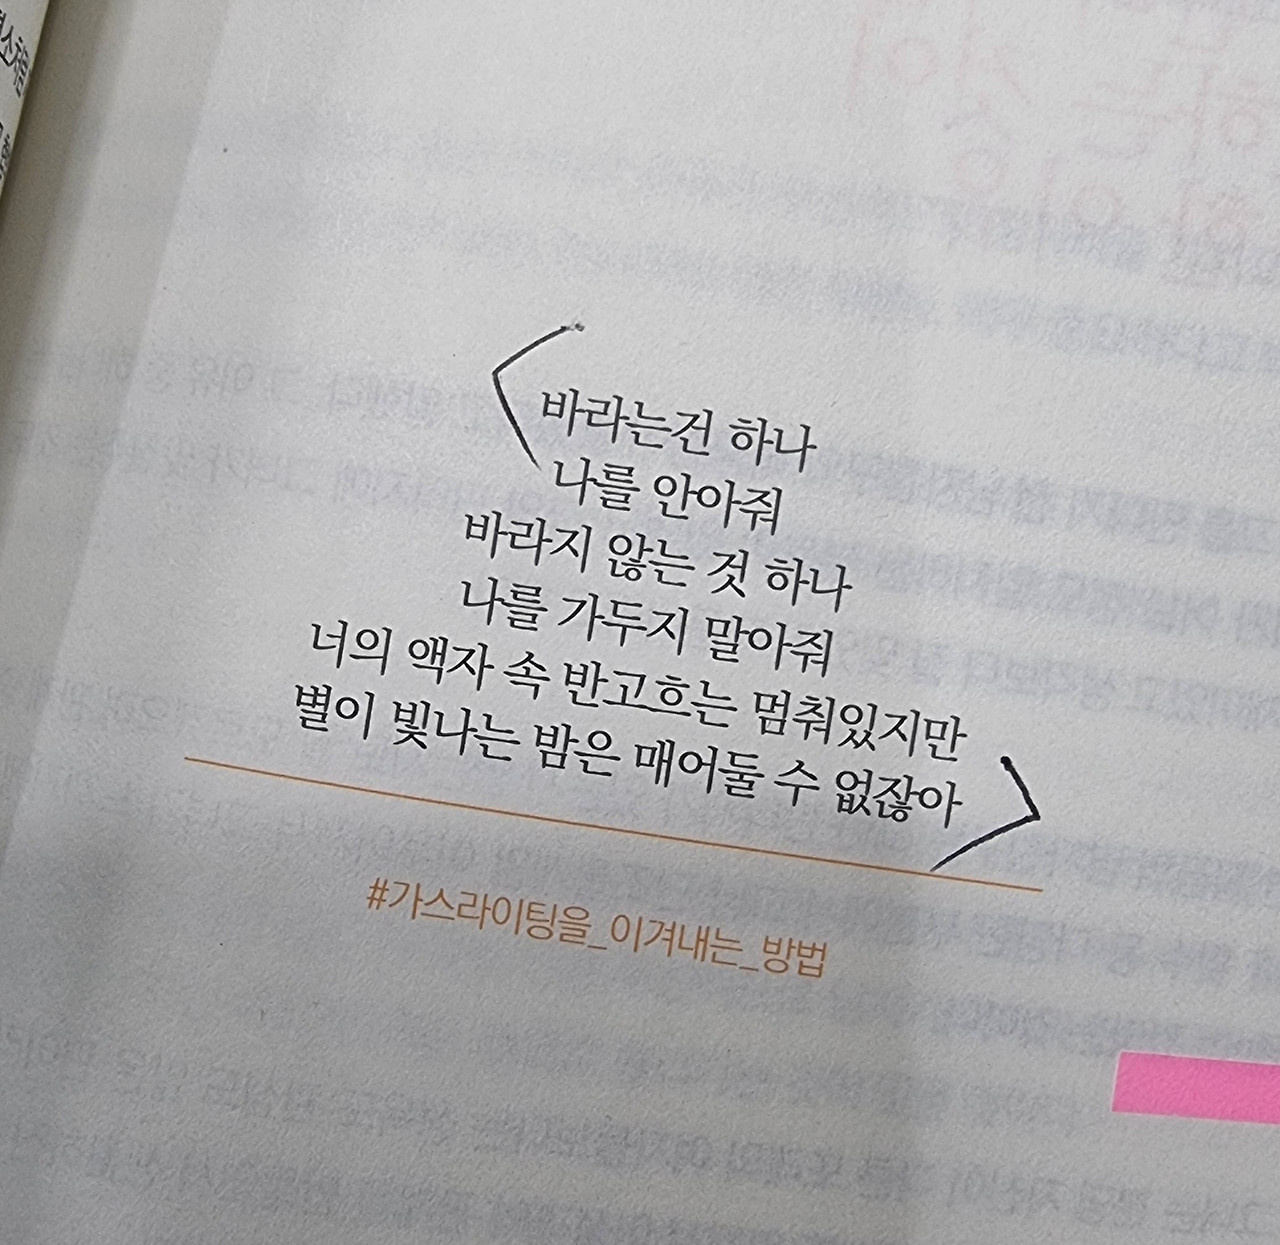 바라는건 하나
나를 안아줘
바라지 않는 것 하나
나를 가두지 말아줘
너의 액자 속 반고흐는 멈춰있지만
별이 빛나는 밤은 매어둘 수 없잖아
#가스라이팅을_이겨내는_방법